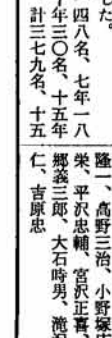 した。
四八名、七年一八
十年三〇名、十五年
計三七九名、十五
隆一、高野三治、小野塚
栄、平沢忠輔、宮沢正喜、
郷義三郎、大石時男、滝
仁、吉原忠